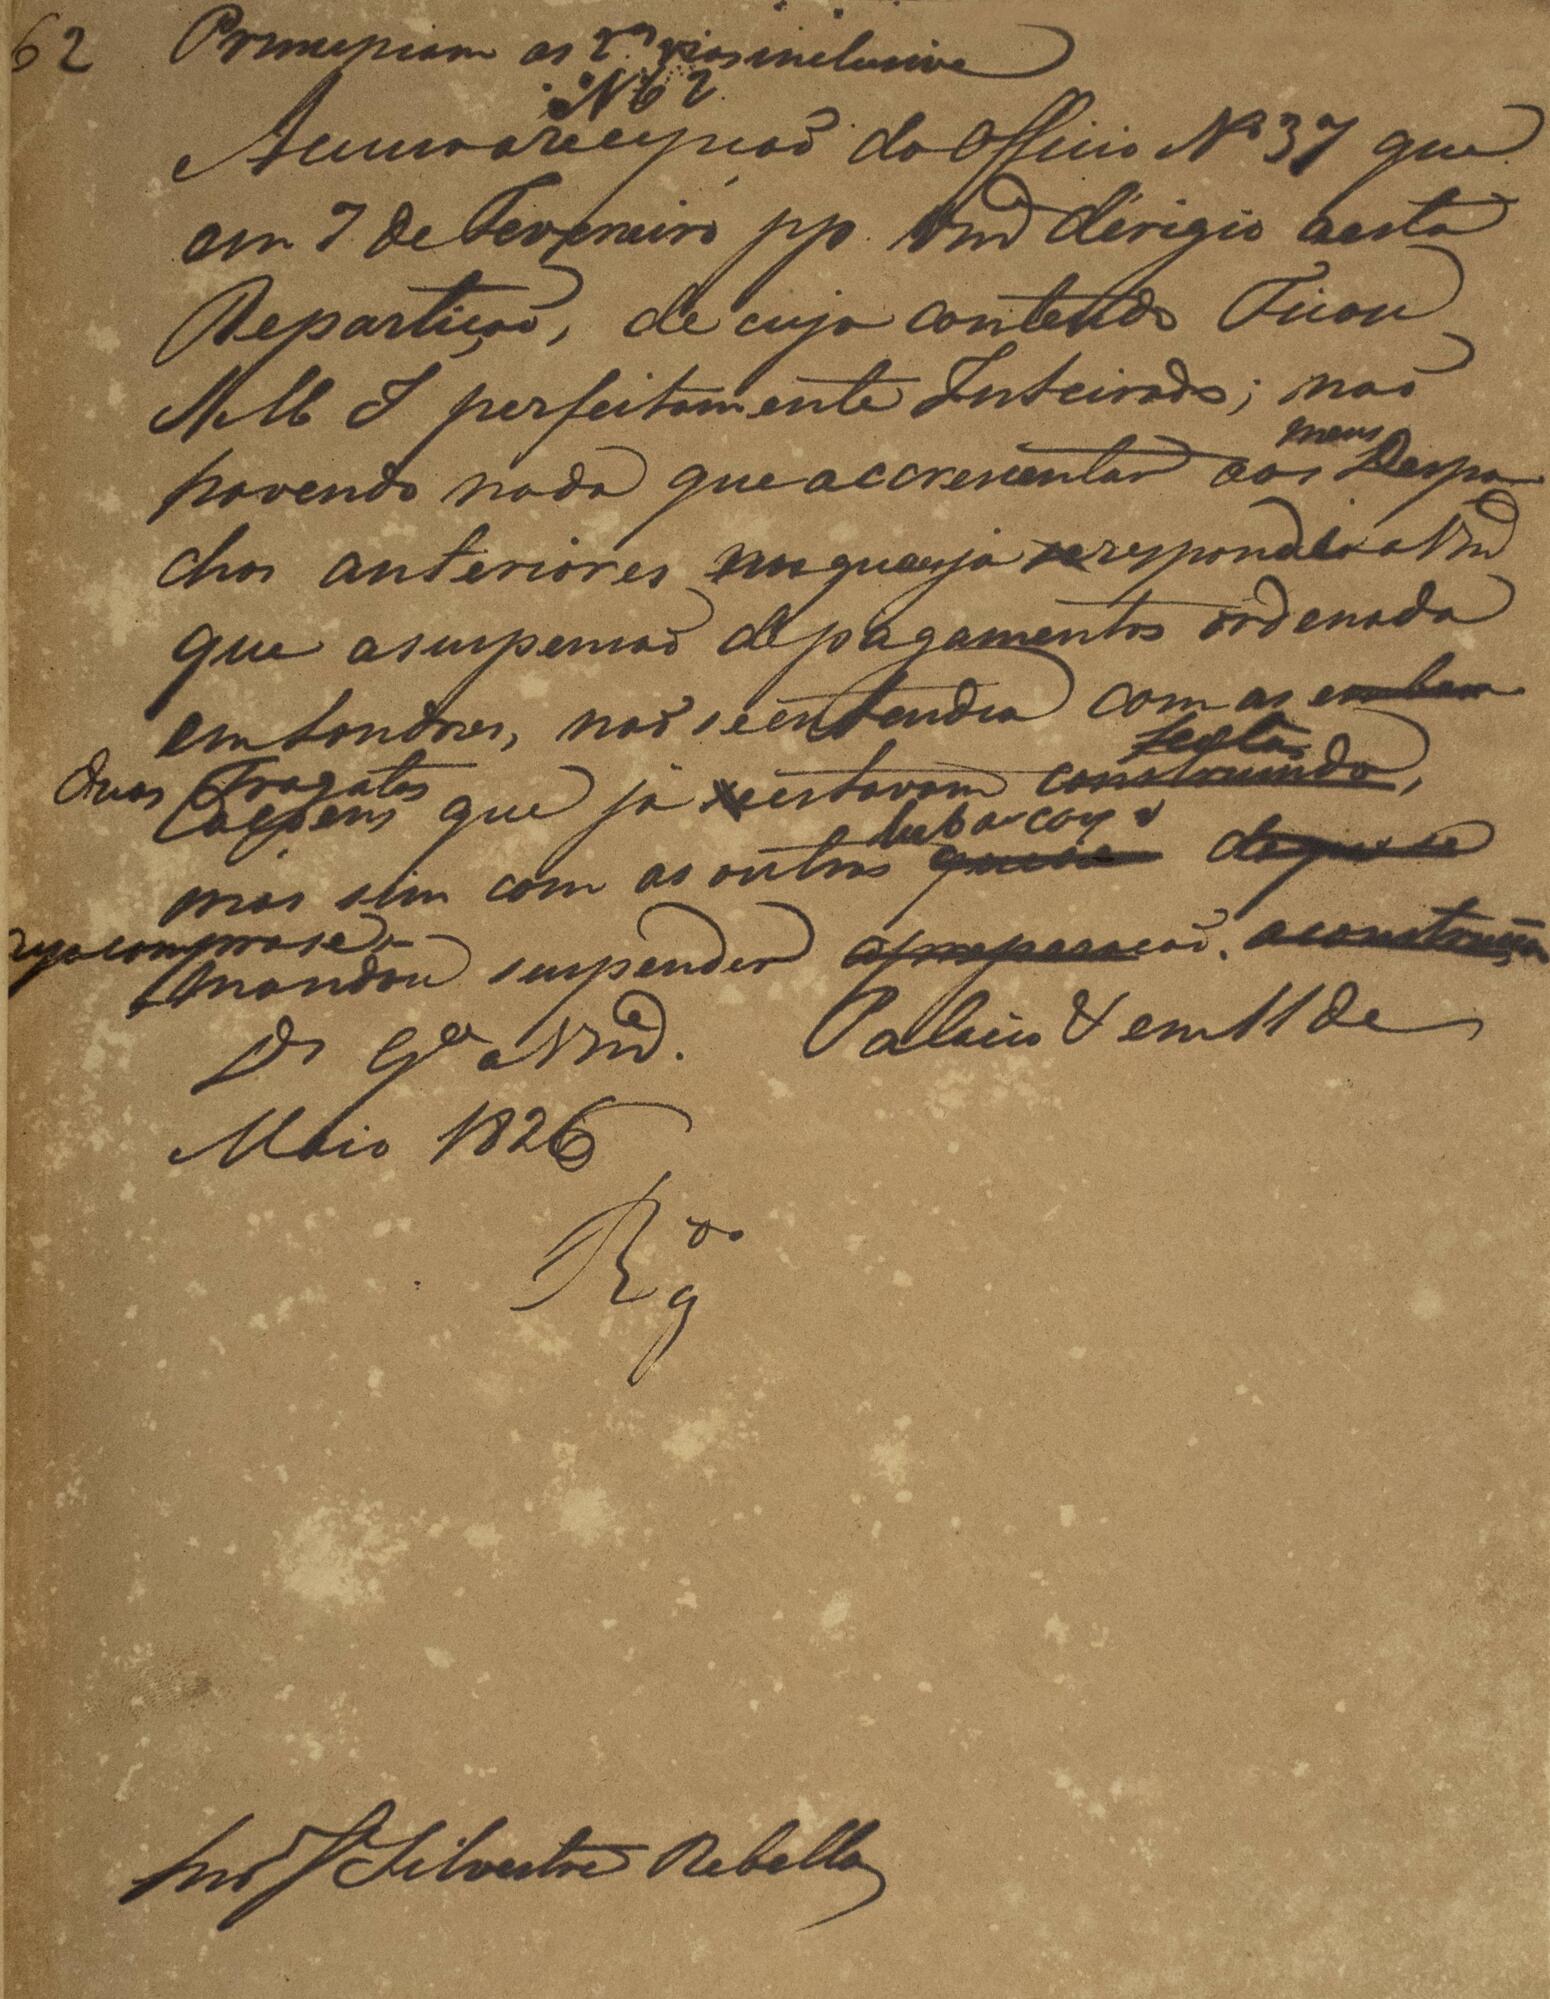 62 Principiam as 2as vias inclusive
Nº 62
Accuso a recepção do Officio Nº 37 que
em 7 de Fevereiro pp. Vmce dirigio a esta
Repartição, de cujo contendo Ficou
S M I perfeitamente Inteirado; não
havendo nada que accrescentar aos meus Despa
chos anteriores em que já respondeo a Vmce
que a suspensão de pagamentos ordenada
em Londres, não se entendia com as embar
duas Fragatas
caçoens que já estavam feitas construindo,
mas sim com as outras embarcaçoens de que se
cuja compra se
mandou suspender a preparação. a construcção
Ds Gde a Vmce. Palacio & em 11 de
Maio 1826
Snr José Silvestre Rebello